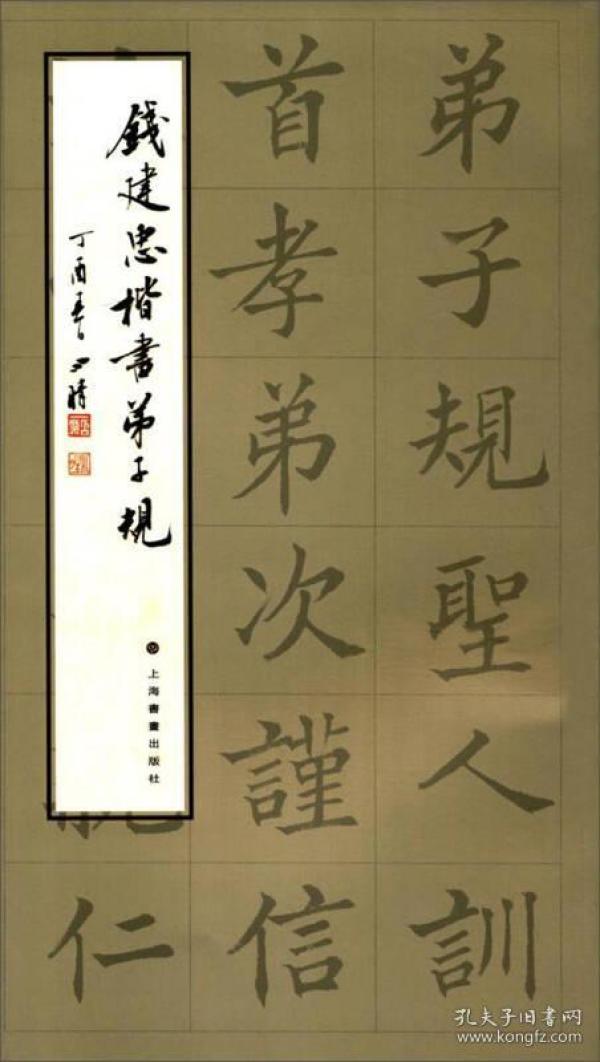 弟子規聖人訓
首孝弟次謹信
仁
錢建忠楷書弟子規
丁酉春
上海書畫出版社
孔夫子旧书网
www.kongfz.com